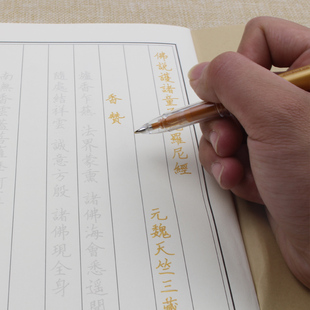 佛說護諸童 羅尼經
元魏天竺三藏
香贊
爐香乍爇 法界蒙熏 諸佛海會悉遙聞
隨處結祥雲 誠意方殷 諸佛現全身
南無香雲蓋菩薩